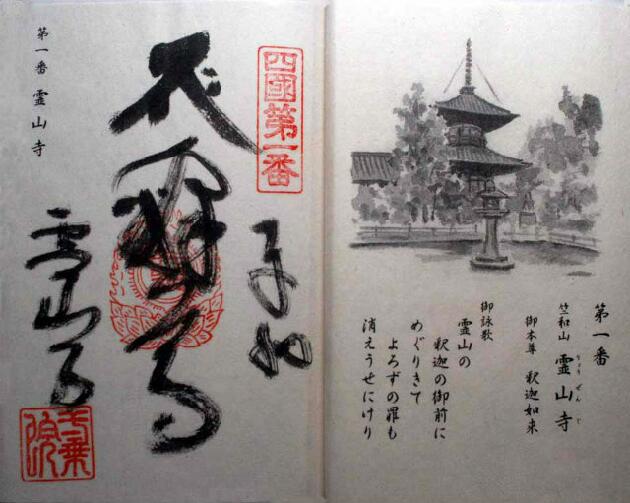 第一番
竺和山 霊山寺
りょうぜんじ
御本尊 釈迦如来
御詠歌
霊山の
釈迦の御前に
めぐりきて
よろずの罪も
消えうせにけり
四國第一番
奉納
霊山寺
第一番 霊山寺